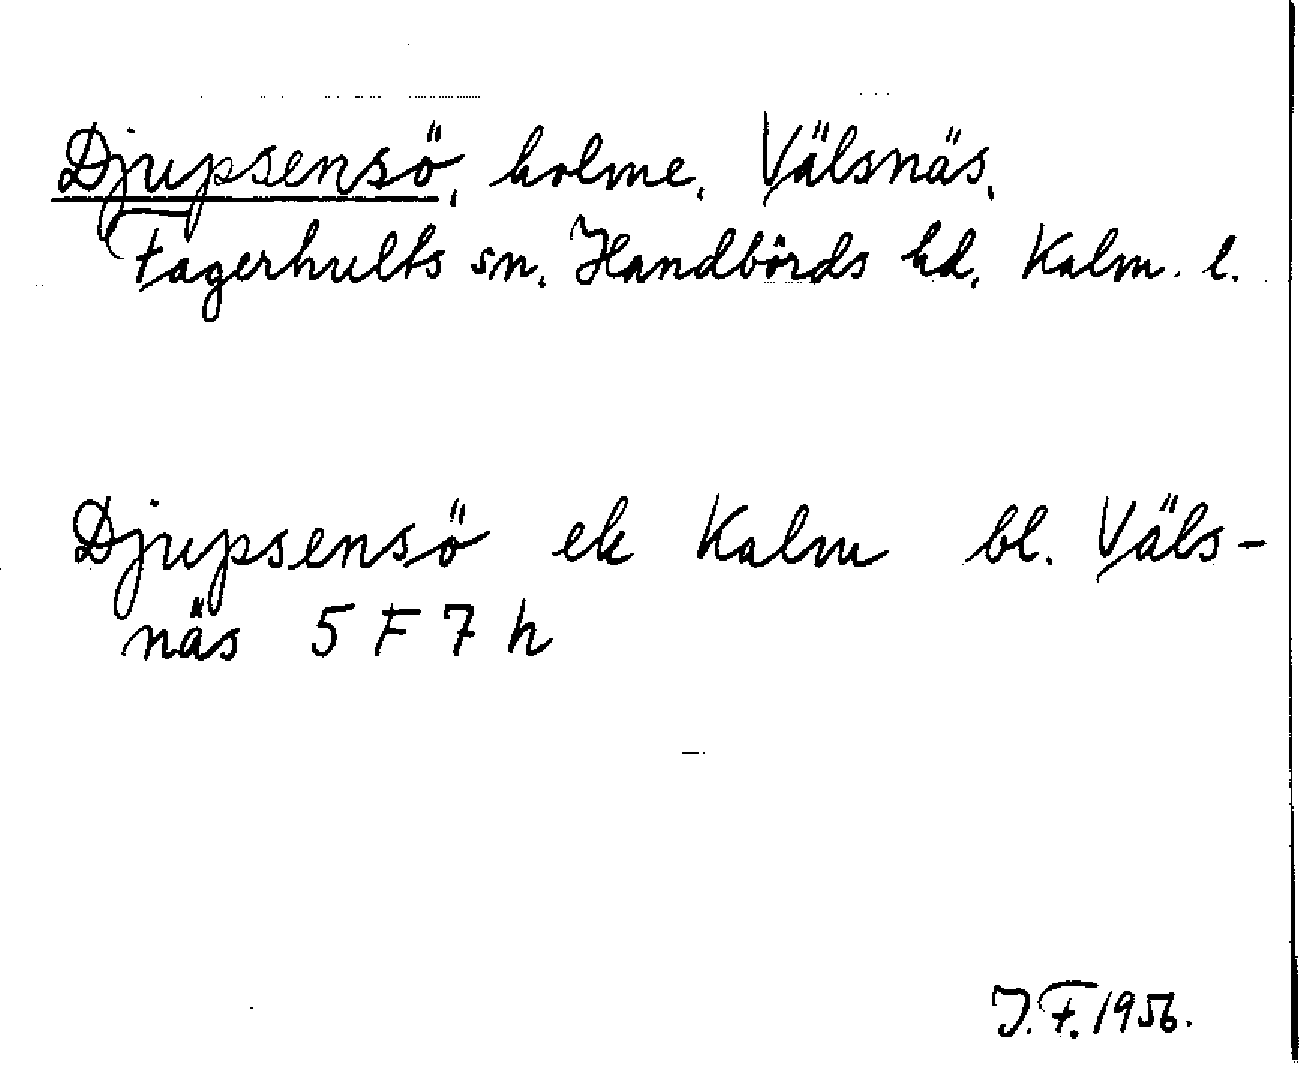 Djupsensö, holme, Välsnäs,
Fagerhults sn, Handbörds hd, Kalm. l.
Djupsensö ek Kalm bl. Väls-
näs 5 F 7 h
J. F. 1956.